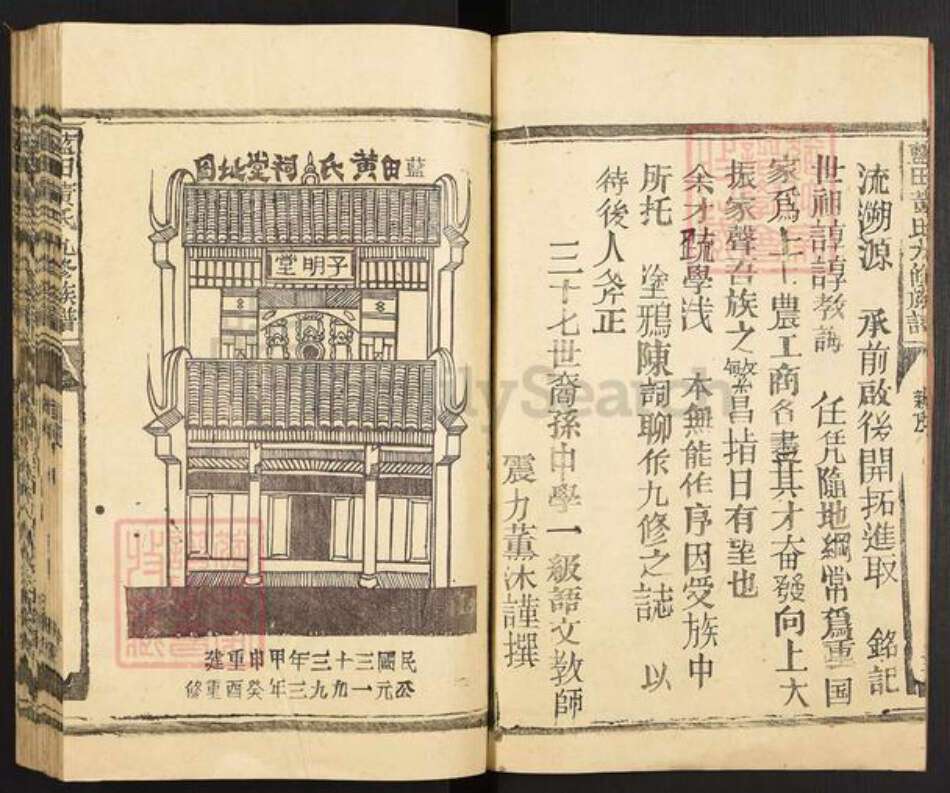 流溯源 承前啟後開拓進取 銘記
世祖諄諄教誨 任凭隨地綱常為重國
家為上士農工商各盡其才奋發向上大
振家聲吾族之繁昌指日有望也
余才疏學浅 本無能作序因受族中
所托 塗鴉陳詞聊作九修之誌 以
待後人斧正
三十七世裔孫中學一級語文教師
震力薰沐謹撰
藍田黃氏九修族譜
藍田黃氏祠堂址圖
子明堂
民國三十三年甲申重建
公元一九九三年癸酉重修
藍田黃氏九修族譜
FamilySearch